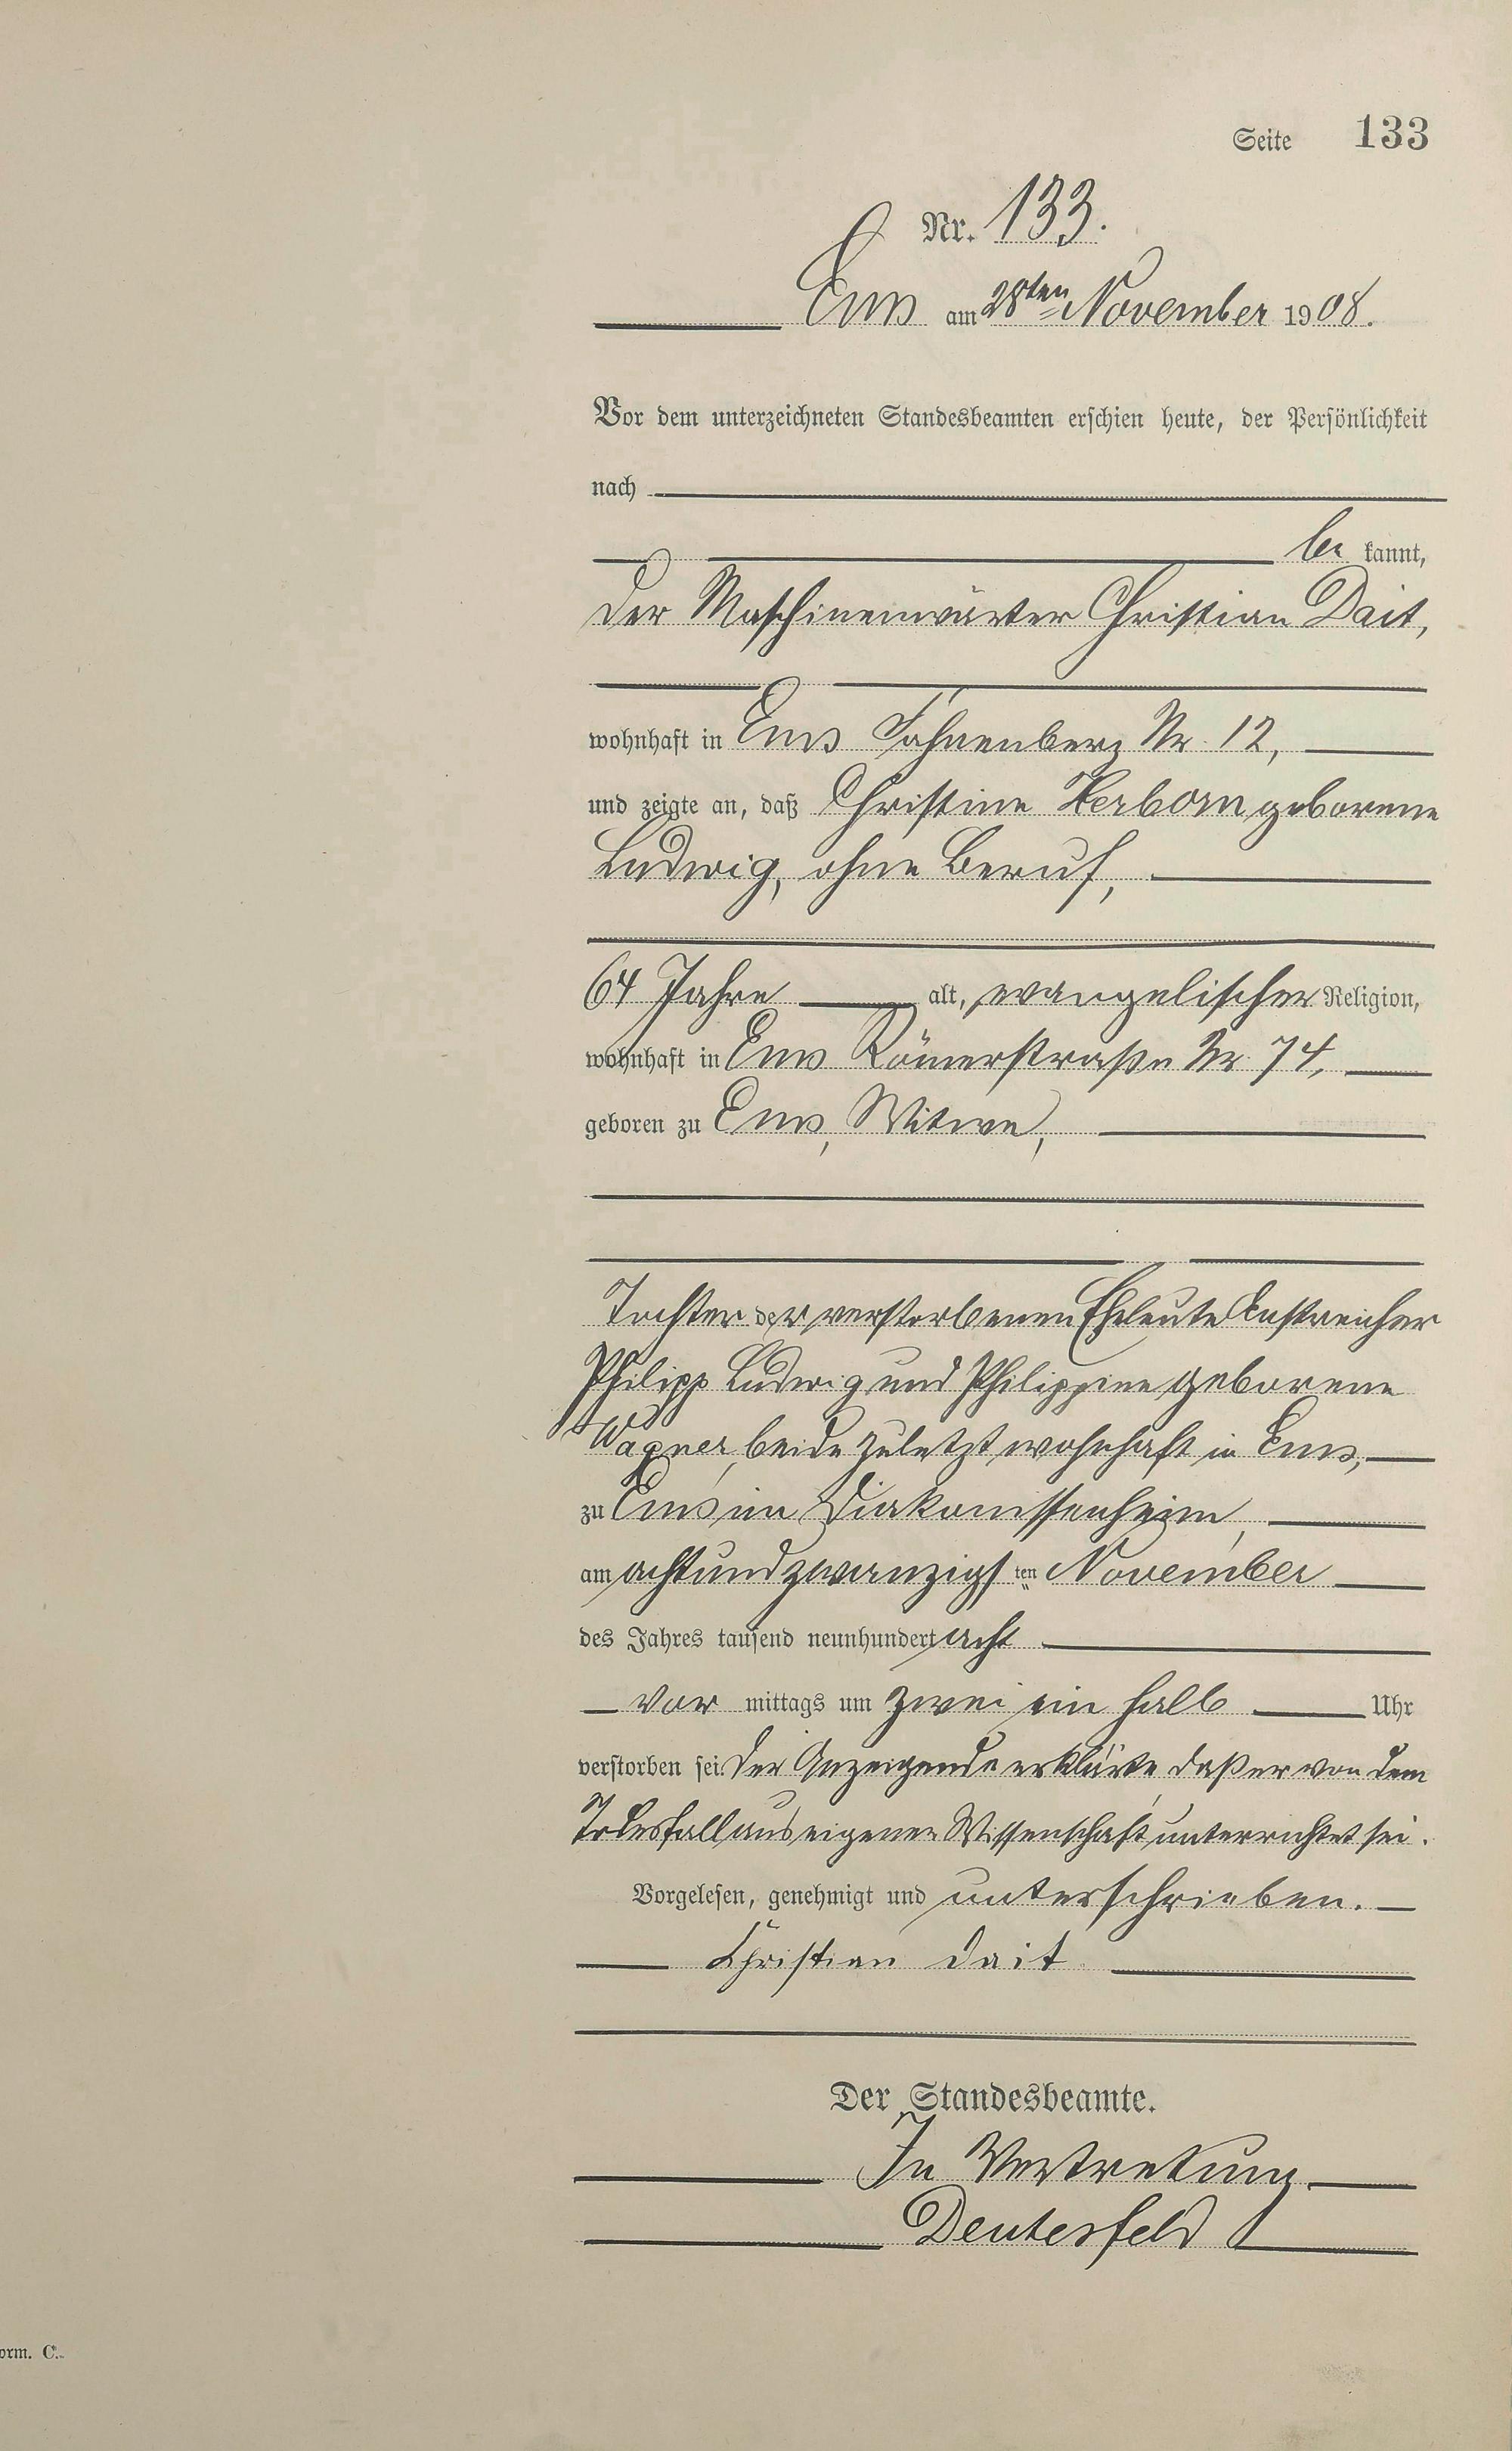 Seite 133
Nr. 133.
Ems am 28ten November 1908.
Vor dem unterzeichneten Standesbeamten erschien heute, der Persönlichkeit
nach
be kannt,
der Maschinenwärter Christian Dait,
wohnhaft in Ems Fahnenberg Nr. 12,
und zeigte an, daß Christine Herborn geborene
Ludwig, ohne Beruf,
64 Jahre alt, evangelischer Religion,
wohnhaft in Ems Römerstraße Nr. 74,
geboren zu Ems, Witwe,
Tochter der verstorbenen Eheleute Anstreicher
Philipp Ludwig und Philippine geborene
Wagner, beide zuletzt wohnhaft in Ems,
zu Ems im Diakonissenheim,
am achtundzwanzigsten November
des Jahres tausend neunhundert acht
vor mittags um zwei ein halb Uhr
verstorben sei. Der Anzeigende erklärte, daß er von dem
Todesfall aus eigener Wissenschaft unterrichtet sei.
Vorgelesen, genehmigt und unterschrieben.
Christian Dait
Der Standesbeamte.
In Vertretung
Deutesfeld
orm. C.